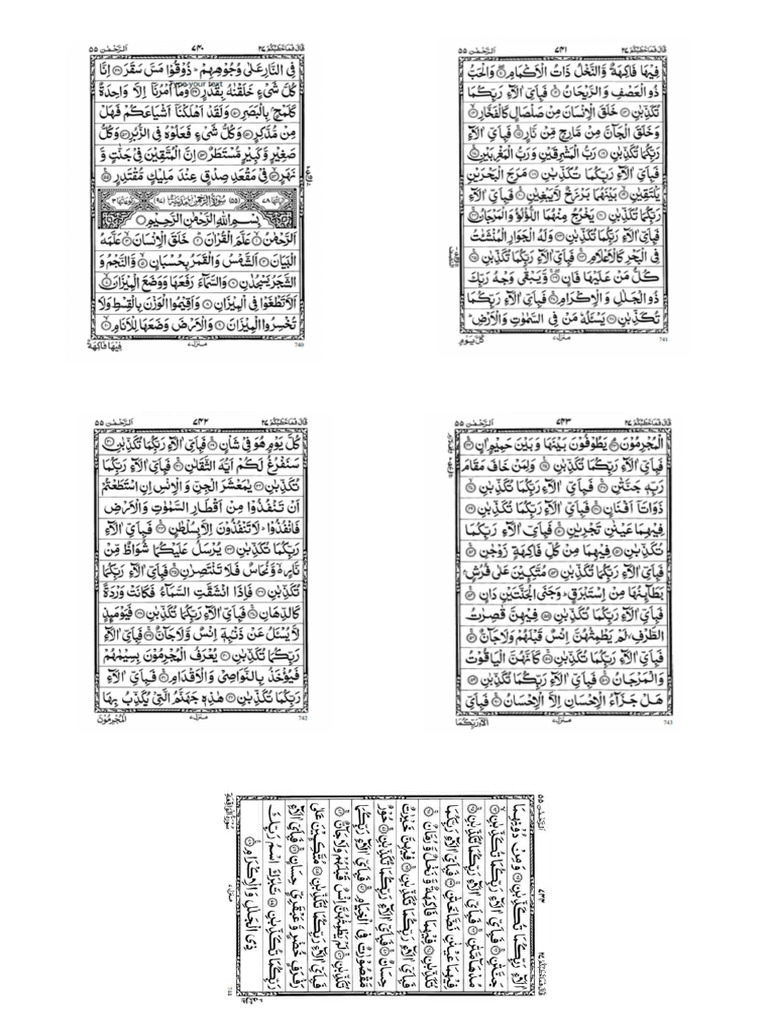 اَلرَّحۡمٰن ٥٥ ٧٤٠ قَالَ فَمَا خَطۡبُكُمۡ ٢٧
فِى النَّارِ عَلٰى وُجُوۡهِهِمۡ ؕ ذُوۡقُوۡا مَسَّ سَقَرَ ﴿٤٨﴾ اِنَّا
كُلَّ شَىۡءٍ خَلَقۡنٰهُ بِقَدَرٍ ﴿٤٩﴾ وَمَاۤ اَمۡرُنَاۤ اِلَّا وَاحِدَةٌ
كَلَمۡحٍۭ بِالۡبَصَرِ ﴿٥٠﴾ وَلَقَدۡ اَهۡلَكۡنَاۤ اَشۡيَاعَكُمۡ فَهَلۡ
مِنۡ مُّدَّكِرٍ ﴿٥١﴾ وَكُلُّ شَىۡءٍ فَعَلُوۡهُ فِى الزُّبُرِ ﴿٥٢﴾ وَكُلُّ
صَغِيۡرٍ وَّكَبِيۡرٍ مُّسۡتَطَرٌ ﴿٥٣﴾ اِنَّ الۡمُتَّقِيۡنَ فِىۡ جَنّٰتٍ وَّ
نَهَرٍ ﴿٥٤﴾ فِىۡ مَقۡعَدِ صِدۡقٍ عِنۡدَ مَلِيۡكٍ مُّقۡتَدِرٍ ﴿٥٥﴾
(٥٥) سُوۡرَةُ الرَّحۡمٰنِ مَدَنِيَّةٌ (٩٧)
بِسۡمِ اللّٰهِ الرَّحۡمٰنِ الرَّحِيۡمِ
اَلرَّحۡمٰنُ ﴿١﴾ عَلَّمَ الۡقُرۡاٰنَ ﴿٢﴾ خَلَقَ الۡاِنۡسَانَ ﴿٣﴾ عَلَّمَهُ
الۡبَيَانَ ﴿٤﴾ اَلشَّمۡسُ وَالۡقَمَرُ بِحُسۡبَانٍ ﴿٥﴾ وَّالنَّجۡمُ وَ
الشَّجَرُ يَسۡجُدٰنِ ﴿٦﴾ وَالسَّمَآءَ رَفَعَهَا وَوَضَعَ الۡمِيۡزَانَ ﴿٧﴾
اَلَّا تَطۡغَوۡا فِى الۡمِيۡزَانِ ﴿٨﴾ وَاَقِيۡمُوا الۡوَزۡنَ بِالۡقِسۡطِ وَلَا
تُخۡسِرُوا الۡمِيۡزَانَ ﴿٩﴾ وَالۡاَرۡضَ وَضَعَهَا لِلۡاَنَامِ ﴿١٠﴾
فِيۡهَا فَاكِهَةٌ منزل ٧ 740
اَلرَّحۡمٰن ٥٥ ٧٤١ قَالَ فَمَا خَطۡبُكُمۡ ٢٧
فِيۡهَا فَاكِهَةٌ وَّالنَّخۡلُ ذَاتُ الۡاَكۡمَامِ ﴿١١﴾ وَالۡحَبُّ
ذُو الۡعَصۡفِ وَالرَّيۡحَانُ ﴿١٢﴾ فَبِاَىِّ اٰلَآءِ رَبِّكُمَا
تُكَذِّبٰنِ ﴿١٣﴾ خَلَقَ الۡاِنۡسَانَ مِنۡ صَلۡصَالٍ كَالۡفَخَّارِ ﴿١٤﴾
وَخَلَقَ الۡجَآنَّ مِنۡ مَّارِجٍ مِّنۡ نَّارٍ ﴿١٥﴾ فَبِاَىِّ اٰلَآءِ
رَبِّكُمَا تُكَذِّبٰنِ ﴿١٦﴾ رَبُّ الۡمَشۡرِقَيۡنِ وَرَبُّ الۡمَغۡرِبَيۡنِ ﴿١٧﴾
فَبِاَىِّ اٰلَآءِ رَبِّكُمَا تُكَذِّبٰنِ ﴿١٨﴾ مَرَجَ الۡبَحۡرَيۡنِ
يَلۡتَقِيٰنِ ﴿١٩﴾ بَيۡنَهُمَا بَرۡزَخٌ لَّا يَبۡغِيٰنِ ﴿٢٠﴾ فَبِاَىِّ اٰلَآءِ
رَبِّكُمَا تُكَذِّبٰنِ ﴿٢١﴾ يَخۡرُجُ مِنۡهُمَا اللُّؤۡلُؤُ وَالۡمَرۡجَانُ ﴿٢٢﴾
فَبِاَىِّ اٰلَآءِ رَبِّكُمَا تُكَذِّبٰنِ ﴿٢٣﴾ وَلَهُ الۡجَوَارِ الۡمُنۡشَـٰٔتُ
فِى الۡبَحۡرِ كَالۡاَعۡلَامِ ﴿٢٤﴾ فَبِاَىِّ اٰلَآءِ رَبِّكُمَا تُكَذِّبٰنِ ﴿٢٥﴾
كُلُّ مَنۡ عَلَيۡهَا فَانٍ ﴿٢٦﴾ وَّيَبۡقٰى وَجۡهُ رَبِّكَ
ذُو الۡجَلٰلِ وَالۡاِكۡرَامِ ﴿٢٧﴾ فَبِاَىِّ اٰلَآءِ رَبِّكُمَا
تُكَذِّبٰنِ ﴿٢٨﴾ يَسۡـَٔلُهٗ مَنۡ فِى السَّمٰوٰتِ وَالۡاَرۡضِ ؕ
كُلَّ يَوۡمٍ منزل ٧ 741
اَلرَّحۡمٰن ٥٥ ٧٤٢ قَالَ فَمَا خَطۡبُكُمۡ ٢٧
كُلَّ يَوۡمٍ هُوَ فِىۡ شَاۡنٍ ﴿٢٩﴾ فَبِاَىِّ اٰلَآءِ رَبِّكُمَا تُكَذِّبٰنِ ﴿٣٠﴾
سَنَفۡرُغُ لَكُمۡ اَيُّهَ الثَّقَلٰنِ ﴿٣١﴾ فَبِاَىِّ اٰلَآءِ رَبِّكُمَا
تُكَذِّبٰنِ ﴿٣٢﴾ يٰمَعۡشَرَ الۡجِنِّ وَالۡاِنۡسِ اِنِ اسۡتَطَعۡتُمۡ
اَنۡ تَنۡفُذُوۡا مِنۡ اَقۡطَارِ السَّمٰوٰتِ وَالۡاَرۡضِ
فَانْفُذُوۡا ؕ لَا تَنۡفُذُوۡنَ اِلَّا بِسُلۡطٰنٍ ﴿٣٣﴾ فَبِاَىِّ اٰلَآءِ
رَبِّكُمَا تُكَذِّبٰنِ ﴿٣٤﴾ يُرۡسَلُ عَلَيۡكُمَا شُوَاظٌ مِّنۡ
نَّارٍ ۙ وَّنُحَاسٌ فَلَا تَنۡتَصِرٰنِ ﴿٣٥﴾ فَبِاَىِّ اٰلَآءِ رَبِّكُمَا
تُكَذِّبٰنِ ﴿٣٦﴾ فَاِذَا انْشَقَّتِ السَّمَآءُ فَكَانَتۡ وَرۡدَةً
كَالدِّهَانِ ﴿٣٧﴾ فَبِاَىِّ اٰلَآءِ رَبِّكُمَا تُكَذِّبٰنِ ﴿٣٨﴾ فَيَوۡمَئِذٍ
لَّا يُسۡـَٔلُ عَنۡ ذَنۡۢبِهٖۤ اِنۡسٌ وَّلَا جَآنٌّ ﴿٣٩﴾ فَبِاَىِّ اٰلَآءِ
رَبِّكُمَا تُكَذِّبٰنِ ﴿٤٠﴾ يُعۡرَفُ الۡمُجۡرِمُوۡنَ بِسِيۡمٰهُمۡ
فَيُؤۡخَذُ بِالنَّوَاصِىۡ وَالۡاَقۡدَامِ ﴿٤١﴾ فَبِاَىِّ اٰلَآءِ
رَبِّكُمَا تُكَذِّبٰنِ ﴿٤٢﴾ هٰذِهٖ جَهَنَّمُ الَّتِىۡ يُكَذِّبُ بِهَا
الۡمُجۡرِمُوۡنَ منزل ٧ 742
اَلرَّحۡمٰن ٥٥ ٧٤٣ قَالَ فَمَا خَطۡبُكُمۡ ٢٧
الۡمُجۡرِمُوۡنَ ﴿٤٣﴾ يَطُوۡفُوۡنَ بَيۡنَهَا وَبَيۡنَ حَمِيۡمٍ اٰنٍ ﴿٤٤﴾
فَبِاَىِّ اٰلَآءِ رَبِّكُمَا تُكَذِّبٰنِ ﴿٤٥﴾ وَلِمَنۡ خَافَ مَقَامَ
رَبِّهٖ جَنَّتٰنِ ﴿٤٦﴾ فَبِاَىِّ اٰلَآءِ رَبِّكُمَا تُكَذِّبٰنِ ﴿٤٧﴾
ذَوَاتَاۤ اَفۡنَانٍ ﴿٤٨﴾ فَبِاَىِّ اٰلَآءِ رَبِّكُمَا تُكَذِّبٰنِ ﴿٤٩﴾
فِيۡهِمَا عَيۡنٰنِ تَجۡرِيٰنِ ﴿٥٠﴾ فَبِاَىِّ اٰلَآءِ رَبِّكُمَا
تُكَذِّبٰنِ ﴿٥١﴾ فِيۡهِمَا مِنۡ كُلِّ فَاكِهَةٍ زَوۡجٰنِ ﴿٥٢﴾
فَبِاَىِّ اٰلَآءِ رَبِّكُمَا تُكَذِّبٰنِ ﴿٥٣﴾ مُتَّكِـِٕيۡنَ عَلٰى فُرُشٍۭ
بَطَآئِنُهَا مِنۡ اِسۡتَبۡرَقٍ ؕ وَجَنَا الۡجَنَّتَيۡنِ دَانٍ ﴿٥٤﴾
فَبِاَىِّ اٰلَآءِ رَبِّكُمَا تُكَذِّبٰنِ ﴿٥٥﴾ فِيۡهِنَّ قٰصِرٰتُ
الطَّرۡفِ ۙ لَمۡ يَطۡمِثۡهُنَّ اِنۡسٌ قَبۡلَهُمۡ وَلَا جَآنٌّ ﴿٥٦﴾
فَبِاَىِّ اٰلَآءِ رَبِّكُمَا تُكَذِّبٰنِ ﴿٥٧﴾ كَاَنَّهُنَّ الۡيَاقُوۡتُ
وَالۡمَرۡجَانُ ﴿٥٨﴾ فَبِاَىِّ اٰلَآءِ رَبِّكُمَا تُكَذِّبٰنِ ﴿٥٩﴾
هَلۡ جَزَآءُ الۡاِحۡسَانِ اِلَّا الۡاِحۡسَانُ ﴿٦٠﴾ فَبِاَىِّ
اٰلَآءِ رَبِّكُمَا منزل ٧ 743
اَلرَّحۡمٰن ٥٥ ٧٤٤ قَالَ فَمَا خَطۡبُكُمۡ ٢٧
اٰلَآءِ رَبِّكُمَا تُكَذِّبٰنِ ﴿٦١﴾ وَمِنۡ دُوۡنِهِمَا
جَنَّتٰنِ ﴿٦٢﴾ فَبِاَىِّ اٰلَآءِ رَبِّكُمَا تُكَذِّبٰنِ ﴿٦٣﴾
مُدۡهَآمَّتٰنِ ﴿٦٤﴾ فَبِاَىِّ اٰلَآءِ رَبِّكُمَا تُكَذِّبٰنِ ﴿٦٥﴾
فِيۡهِمَا عَيۡنٰنِ نَضَّاخَتٰنِ ﴿٦٦﴾ فَبِاَىِّ اٰلَآءِ رَبِّكُمَا
تُكَذِّبٰنِ ﴿٦٧﴾ فِيۡهِمَا فَاكِهَةٌ وَّنَخۡلٌ وَّرُمَّانٌ ﴿٦٨﴾
فَبِاَىِّ اٰلَآءِ رَبِّكُمَا تُكَذِّبٰنِ ﴿٦٩﴾ فِيۡهِنَّ خَيۡرٰتٌ
حِسَانٌ ﴿٧٠﴾ فَبِاَىِّ اٰلَآءِ رَبِّكُمَا تُكَذِّبٰنِ ﴿٧١﴾ حُوۡرٌ
مَّقۡصُوۡرٰتٌ فِى الۡخِيَامِ ﴿٧٢﴾ فَبِاَىِّ اٰلَآءِ رَبِّكُمَا
تُكَذِّبٰنِ ﴿٧٣﴾ لَمۡ يَطۡمِثۡهُنَّ اِنۡسٌ قَبۡلَهُمۡ وَلَا جَآنٌّ ﴿٧٤﴾
فَبِاَىِّ اٰلَآءِ رَبِّكُمَا تُكَذِّبٰنِ ﴿٧٥﴾ مُتَّكِـِٕيۡنَ عَلٰى
رَفۡرَفٍ خُضۡرٍ وَّعَبۡقَرِىٍّ حِسَانٍ ﴿٧٦﴾ فَبِاَىِّ اٰلَآءِ
رَبِّكُمَا تُكَذِّبٰنِ ﴿٧٧﴾ تَبٰرَكَ اسۡمُ رَبِّكَ
ذِى الۡجَلٰلِ وَالۡاِكۡرَامِ ﴿٧٨﴾
سُوۡرَةُ الۡوَاقِعَةِ منزل ٧ 744